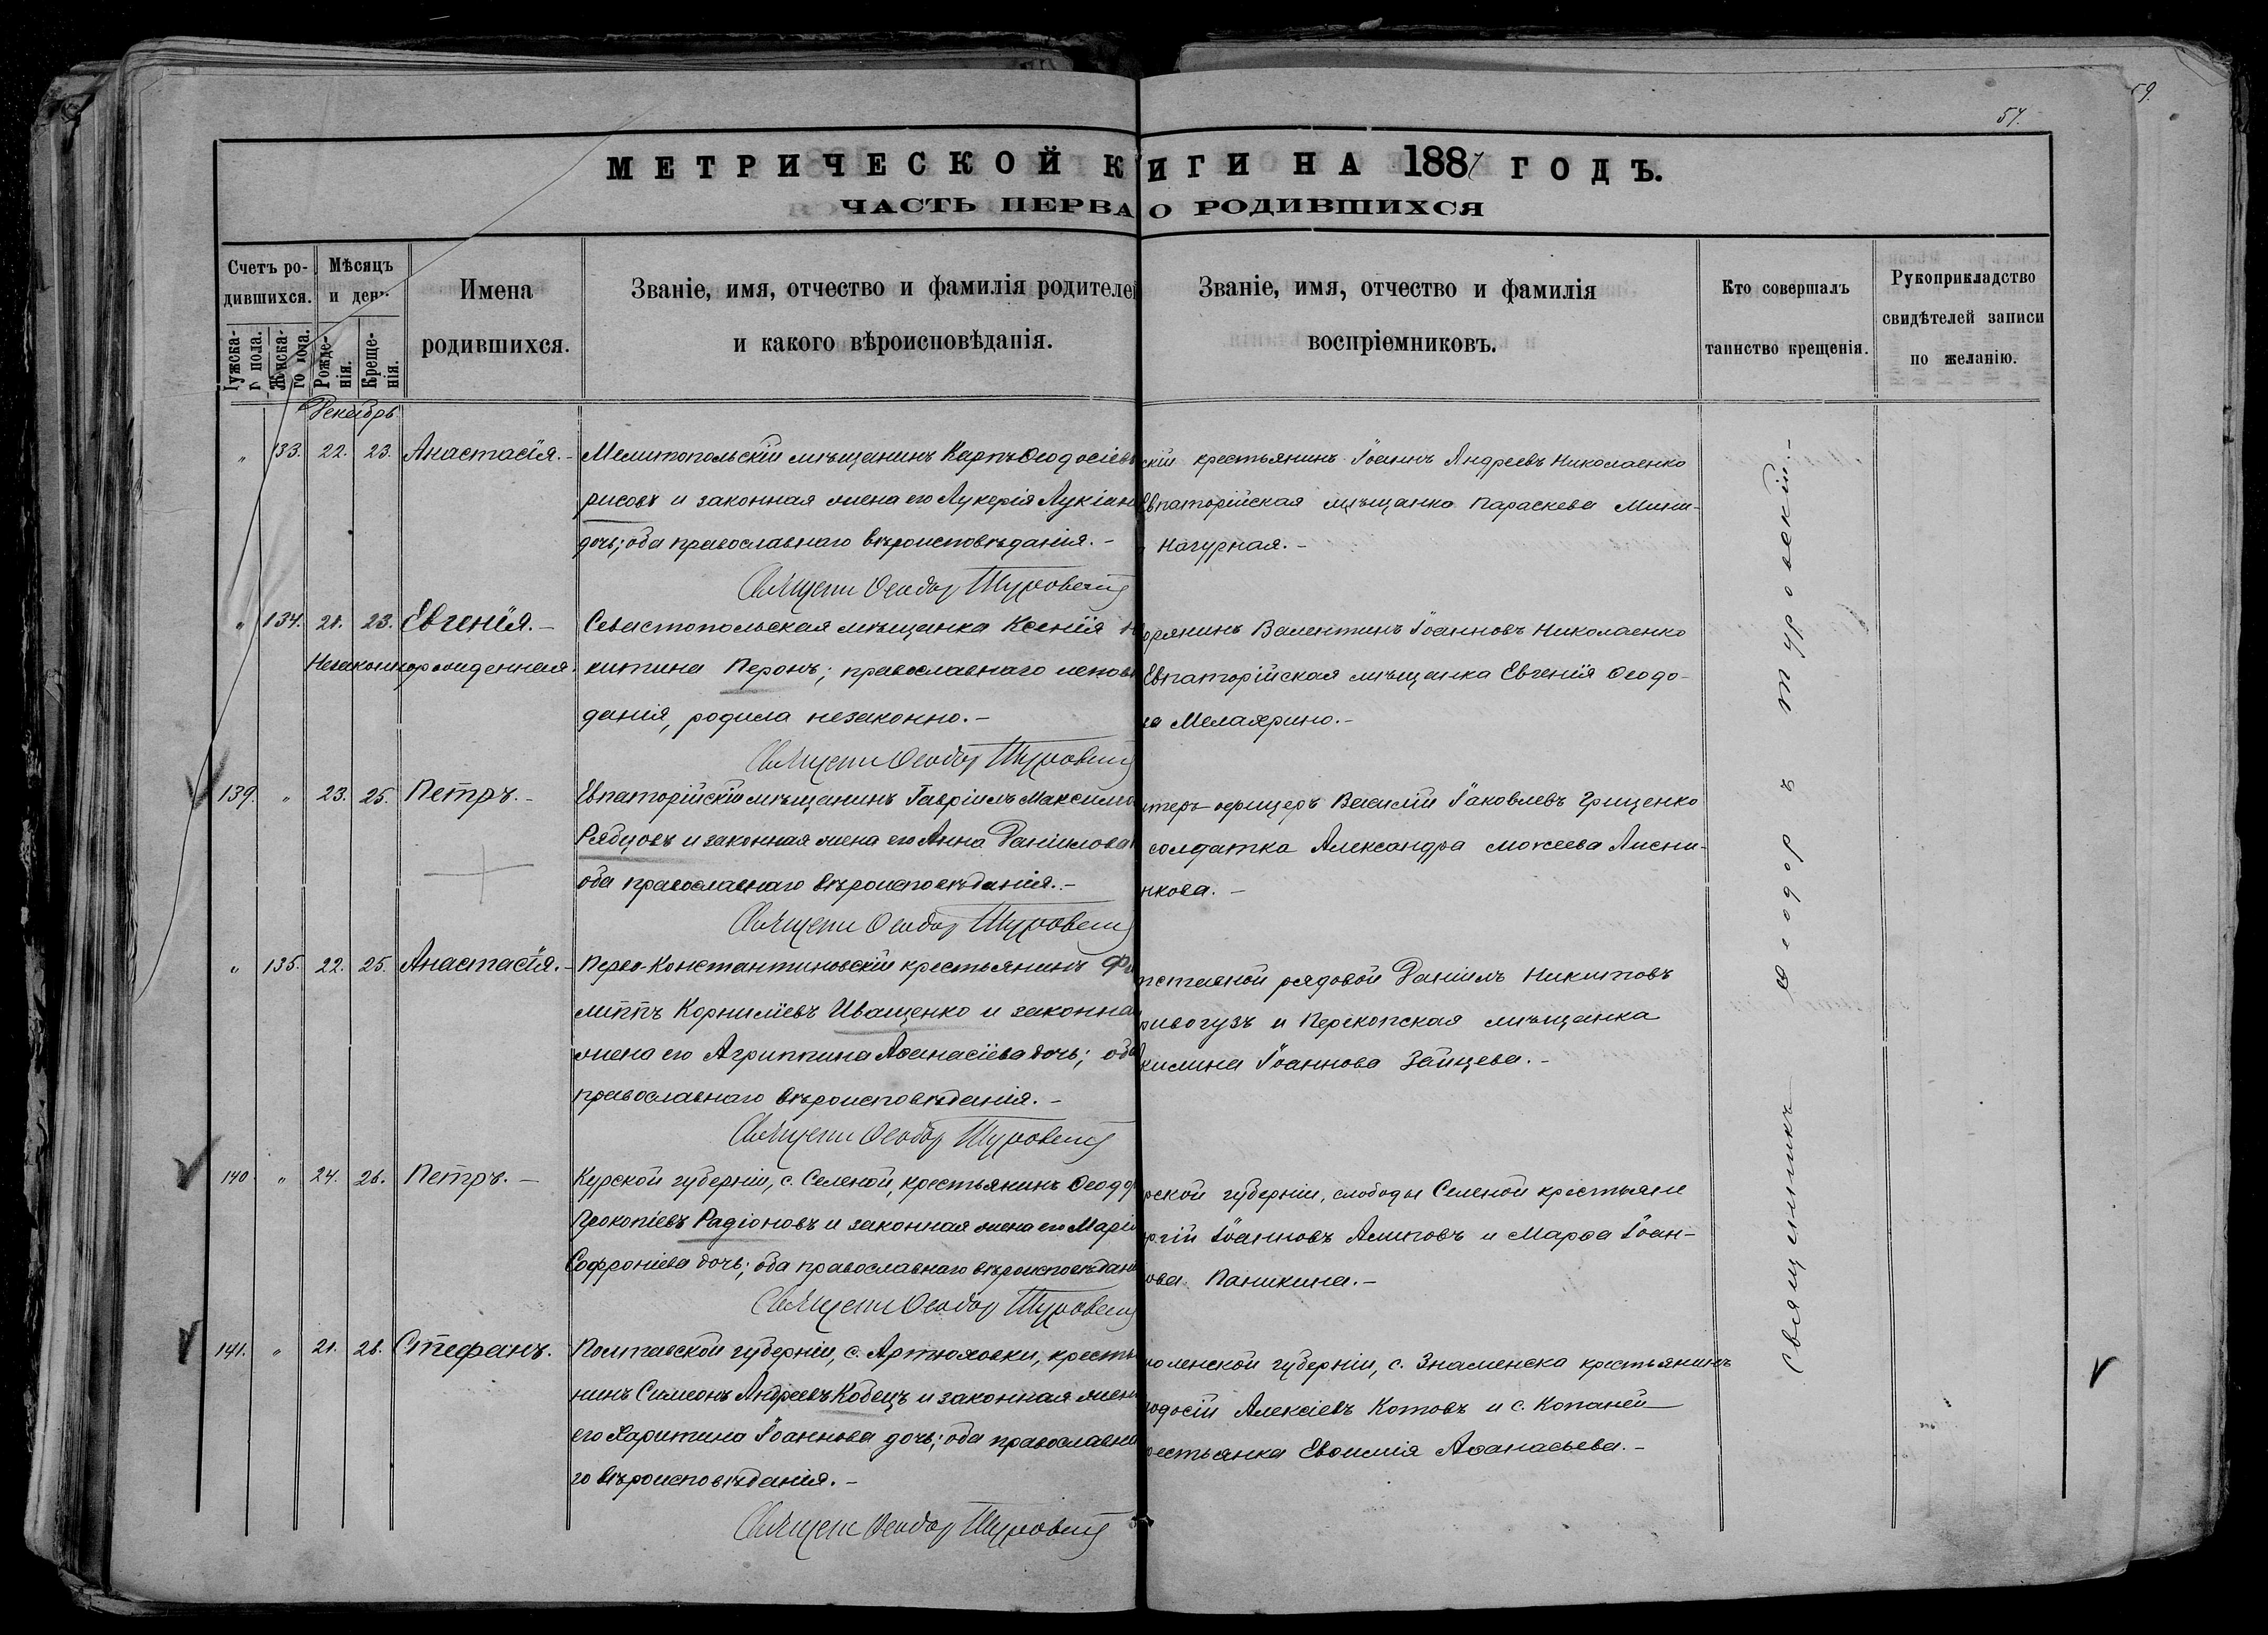 59.
57.
МЕТРИЧЕСКОЙ К ИГИ НА 1887 ГОДЪ.
ЧАСТЬ ПЕРВА О РОДИВШИХСЯ
Счетъ ро-
дившихся.
Мѣсяцъ
и день
Имена
родившихся.
Званіе, имя, отчество и фамилія родителей
и какого вѣроисповѣданія.
Званіе, имя, отчество и фамилія
воспріемниковъ.
Кто совершалъ
таинство крещенія.
Рукоприкладство
свидѣтелей записи
по желанію.
Мужска-
го пола.
Женска-
го пола.
Рожде-
нія.
Креще-
нія.
Декабрь
" 133. 22. 23. Анастасія. - Мелитопольскій мѣщанинъ Карпъ Ѳеодосіевъ
рисовъ и законная жена его Лукерія Лукіан
дочь; оба православнаго вѣроисповѣданія. -
Священ Ѳеодор Туровскій
скій крестьянинъ Іоаннъ Андреевъ Николаенко
Евпаторійская мѣщанка Параскева Мини-
Качурная. -
" 134. 21. 23. Евгенія. - Севастопольская мѣщанка Ксенія Н
Незаконнорожденная. китина Перонъ; православнаго исповѣ
данія, родила незаконно. -
Священ Ѳеодор Туровскій
орянинъ Валентинъ Іоанновъ Николаенко
Евпаторійская мѣщанка Евгенія Ѳеодо-
ва Мелахрино. -
139. " 23. 25. Петръ. - Евпаторійскій мѣщанинъ Гавріилъ Максимо
Рябцовъ и законная жена его Анна Даніилова
оба православнаго вѣроисповѣданія. -
Священ Ѳеодор Туровскій
нтеръ офицеръ Василій Іаковлевъ Грищенко
солдатка Александра Моѵсеева Лисни-
нкова. -
" 135. 22. 25. Анастасія. - Перво-Константиновскій крестьянинъ Фи
липпъ Корниліевъ Иващенко и законна
жена его Агриппина Аѳанасіева дочь; оба
православнаго вѣроисповѣданія. -
Священ Ѳеодор Туровскій
тставной рядовой Даніилъ Никитовъ
ривогузъ и Перекопская мѣщанка
килина Іоаннова Зайцева. -
140. " 24. 26. Петръ. - Курской губерніи, с. Селеной, крестьянинъ Ѳеодор
Прокопіевъ Радіоновъ и законная жена его Марія
Софроніева дочь; оба православнаго вѣроисповѣдані
Священ Ѳеодор Туровскій
рской губерніи, слободы Селеной крестьяне
ргій Іоанновъ Алиповъ и Марѳа Іоан-
ова Паникина. -
141. " 21. 26. Стефанъ. Полтавской губерніи, с. Артюховки, крестья
нинъ Симеонъ Андреевъ Кобецъ и законная жена
его Харитина Іоаннова дочь; оба православна
го вѣроисповѣданія. -
Священ Ѳеодор Туровскій
моленской губерніи, с. Знаменска крестьянинъ
еодосій Алексіевъ Котовъ и с. Копаней
рестьянка Евѳимія Аѳанасьева. -
Священникъ Ѳеодоръ Туровскій. -